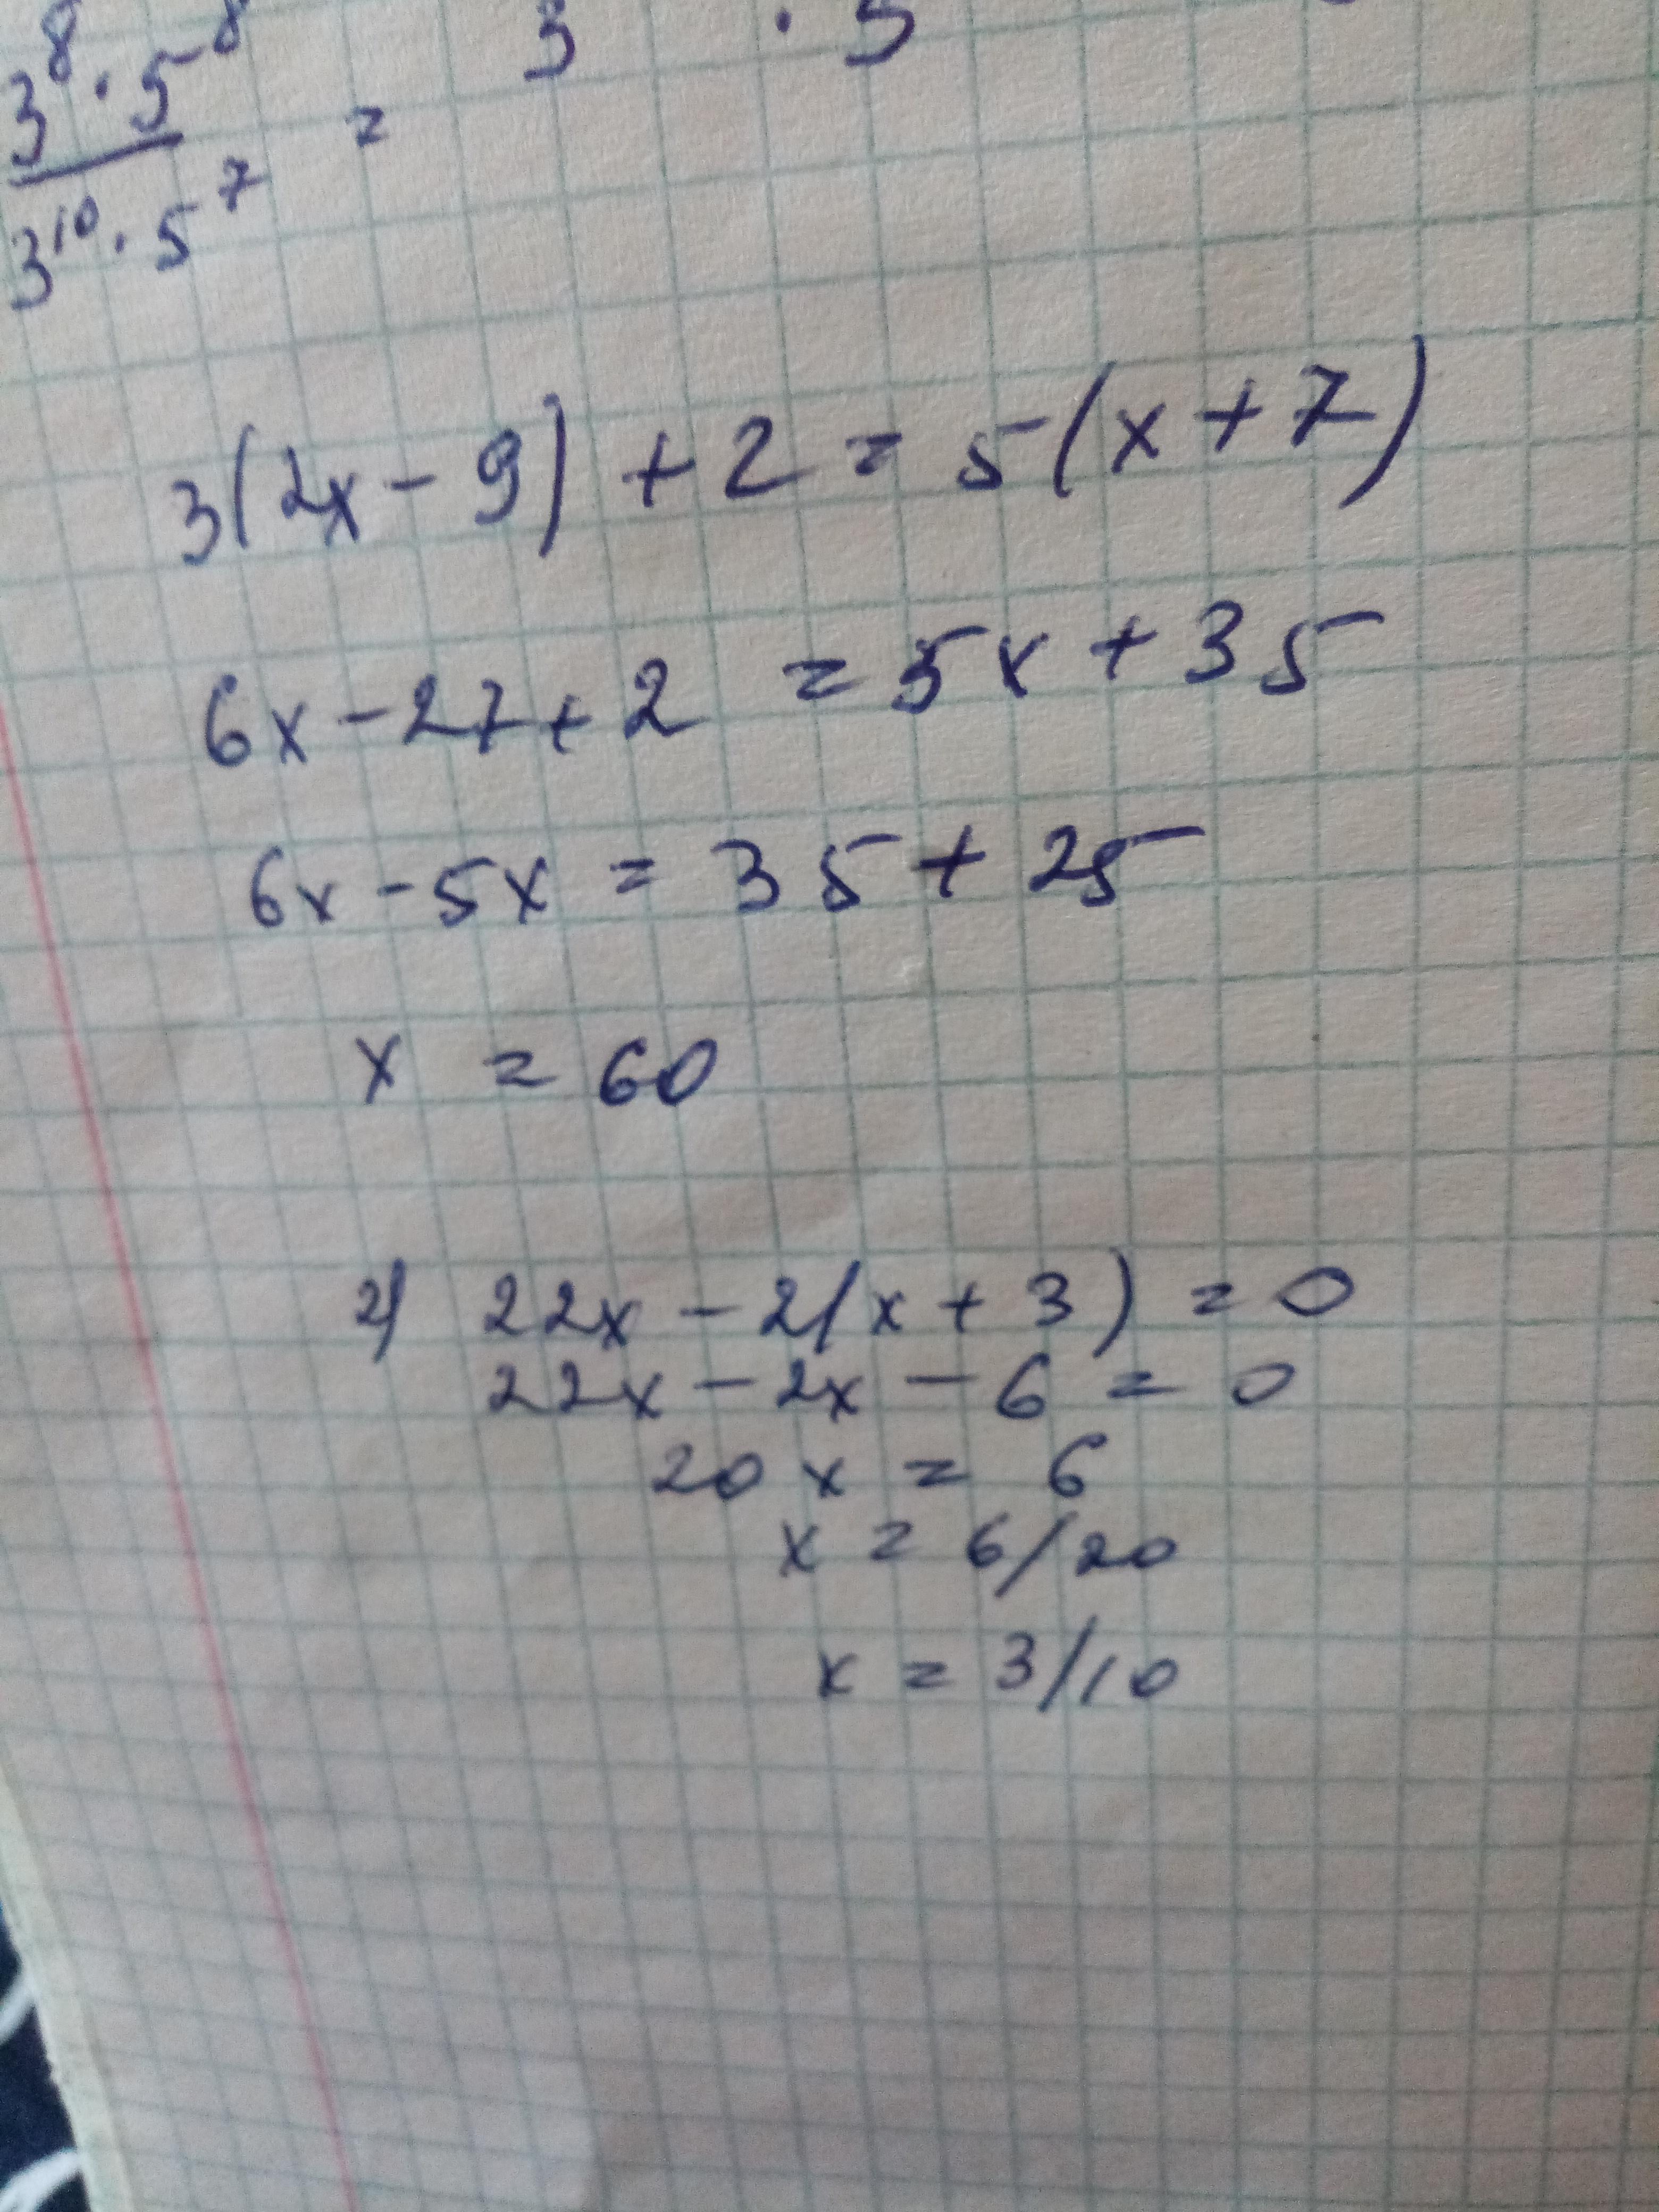 3⁸ · 5⁸ / 3¹⁰ · 5⁷ = 3 · 5
3(2x - 9) + 2 = 5(x + 7)
6x - 27 + 2 = 5x + 35
6x - 5x = 35 + 25
x = 60
2) 22x - 2(x + 3) = 0
22x - 2x - 6 = 0
20x = 6
x = 6/20
x = 3/10